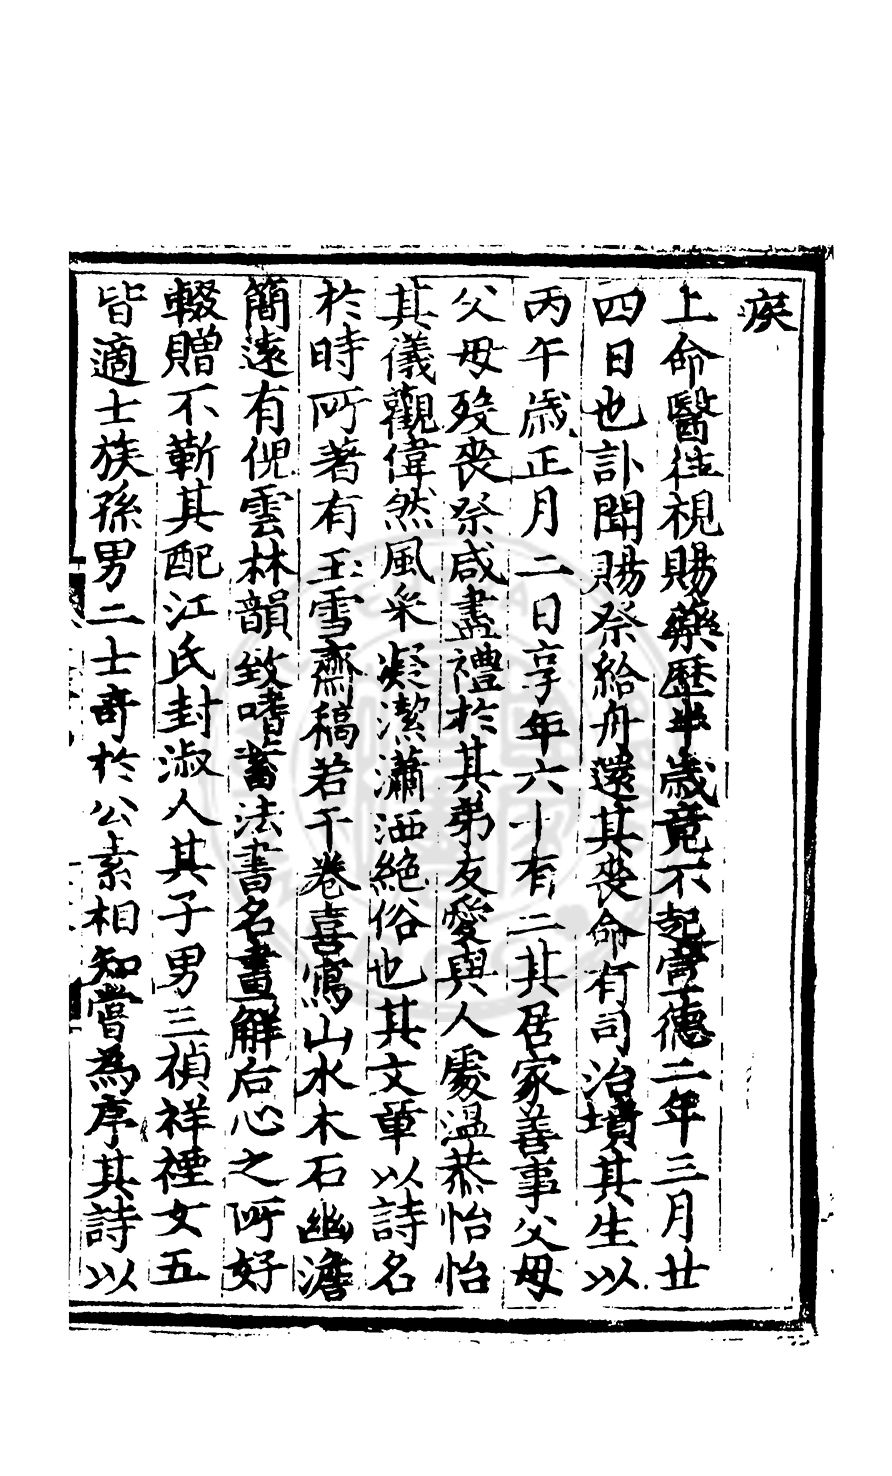 疾
上命醫往視賜藥歷半歲竟不起宣德二年三月廿
四日也訃聞賜祭給舟還其喪命有司治墳其生以
丙午歲正月二日享年六十有二其居家善事父母
父母歿喪祭咸盡禮於其弟友愛與人處溫恭怡怡
其儀觀偉然風采凝潔瀟洒絕俗也其文章以詩名
於時所著有玉雪齋稿若干卷喜寫山水木石幽澹
簡遠有倪雲林韻致嗜蓄法書名畫解后心之所好
輟贈不蘄其配江氏封淑人其子男三禎祥禋女五
皆適士族孫男二士奇於公素相知嘗為序其詩以